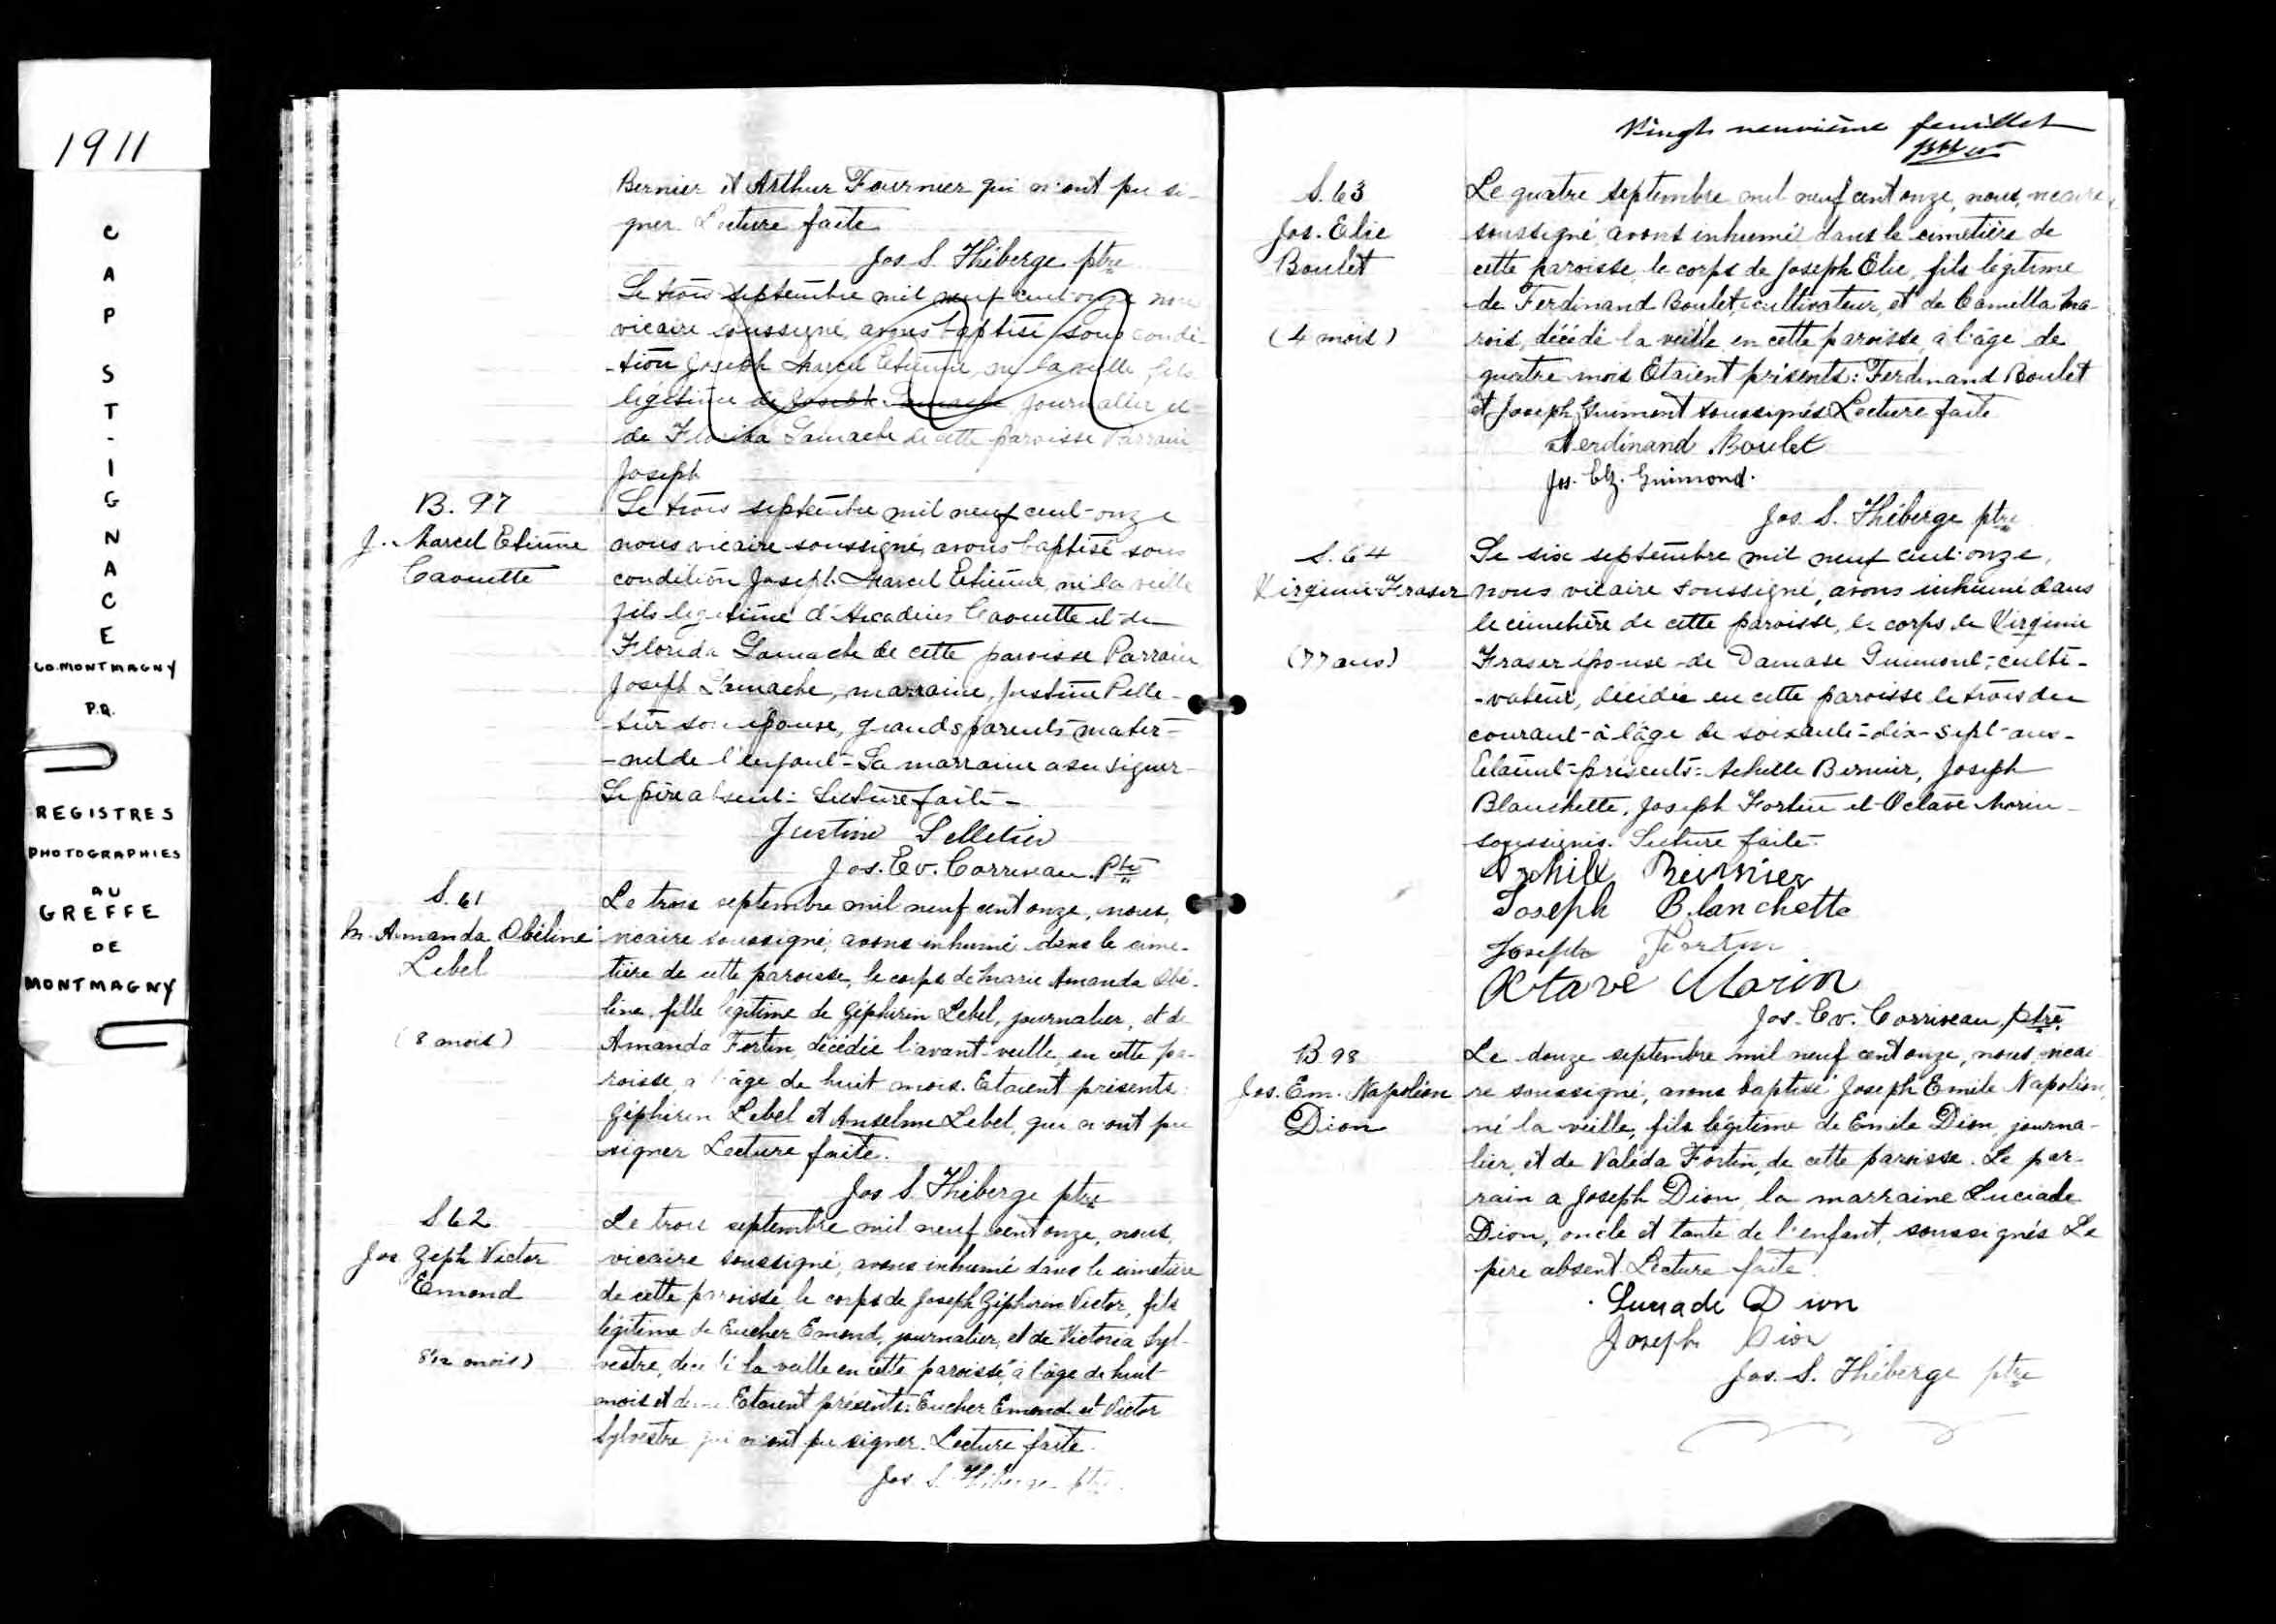 1911
CAP ST-IGNACE
CO. MONTMAGNY
P.Q.
REGISTRES
PHOTOGRAPHIES
AU
GREFFE
DE
MONTMAGNY
Bernier et Arthur Fournier qui n'ont pu si-
gner Lecture faite
Jos S. Théberge ptre
Le trois septembre mil neuf cent-onze nous
vicaire soussigné, avons baptisé sous condi-
-tion Joseph Marcel Etienne né la veille, fils
légitime de Joseph Damase journalier et
de Florida Gamache de cette paroisse Parrain
Joseph
B. 97
J. Marcel Etienne
Caouette
Le trois septembre mil neuf cent-onze
nous vicaire soussigné, avons baptisé sous
condition Joseph Marcel Etienne, né la veille
fils légitime d'Arcadius Caouette et de
Florida Gamache de cette paroisse Parrain
Joseph Gamache, marraine, Justine Pelle-
-tier son épouse, grands parents mater-
-nel de l'enfant - La marraine a su signer -
Le père absent - Lecture faite -
Justine Pelletier
Jos. Ev. Corriveau. Ptre
S. 61
M. Amanda Obéline
Lebel
(8 mois)
Le trois septembre mil neuf cent onze, nous,
vicaire soussigné, avons inhumé dans le cime-
tière de cette paroisse, le corps de Marie Amanda Obé-
line, fille légitime de Zéphirin Lebel, journalier, et de
Amanda Fortin, décédée l'avant-veille, en cette pa-
roisse, à l'âge de huit mois. Etaient présents:
Zéphirin Lebel et Anselme Lebel, qui n'ont pu
signer Lecture faite.
Jos S. Théberge ptre
S 62
Jos Zéph Victor
Emond
8 1/2 mois)
Le trois septembre mil neuf cent onze, nous,
vicaire soussigné, avons inhumé dans le cimetière
de cette paroisse, le corps de Joseph Zéphirin Victor, fils
légitime de Eucher Emond, journalier, et de Victoria Syl-
vestre, décédé la veille en cette paroisse, à l'âge de huit
mois et demi Etaient présents: Eucher Emond et Victor
Sylvestre qui n'ont pu signer. Lecture faite.
Jos S. Théberge ptre
Vingt neuvième feuillet
S. 63
Jos. Elie
Boulet
(4 mois)
Le quatre septembre mil neuf cent onze, nous, vicaire,
soussigné, avons inhumé dans le cimetière de
cette paroisse, le corps de Joseph Elie, fils légitime
de Ferdinand Boulet, cultivateur, et de Camilla Ma-
rois, décédé la veille en cette paroisse, à l'âge de
quatre mois Etaient présents: Ferdinand Boulet
et Joseph Guimont soussignés Lecture faite
Ferdinand Boulet
Jos. Elz. Guimond.
Jos. S. Théberge ptre
S. 64
Virginie Fraser
(77 ans)
Le six septembre mil neuf cent-onze,
nous vicaire soussigné, avons inhumé dans
le cimetière de cette paroisse, le corps de Virginie
Fraser épouse de Damase Guimont, culti-
-vateur, décédée en cette paroisse le trois du
courant - à l'âge de soixante-dix-sept-ans -
Etaient - présents: Achille Bernier, Joseph
Blanchette, Joseph Fortin et Octave Morin
soussignés. Lecture faite -
Achille Bernier
Joseph Blanchette
Joseph Fortin
Octave Morin
Jos. Ev. Corriveau, ptre
B 98
Jos. Em. Napoléon
Dion
Le douze septembre mil neuf cent onze, nous, vicai
re soussigné, avons baptisé Joseph Emile Napoléon,
né la veille, fils légitime de Emile Dion, journa-
lier, et de Valéda Fortin, de cette paroisse. Le par-
rain a Joseph Dion, la marraine Luciade
Dion, oncle et tante de l'enfant, soussignés Le
père absent. Lecture faite.
Luciade Dion
Joseph Dion
Jos. S. Théberge ptre